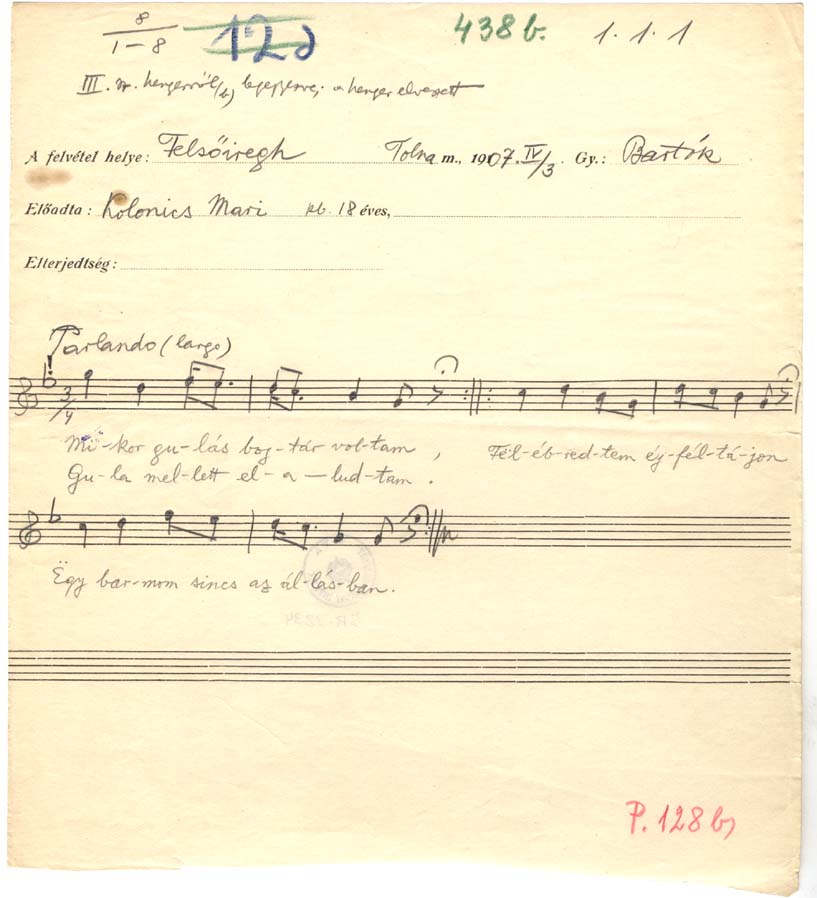 8
1–8
12d
438 b.
1.1.1
III. sz. hengerről (b) lejegyezve; a henger elveszett
A felvétel helye: Felsőiregh Tolna m., 1907. IV/3. Gy.: Bartók
Előadta: Kolonics Mari kb. 18 éves,
Elterjedtség:
Parlando (largo)
3/4
Mi-kor gu-lás boj-tár vol-tam, Fël-éb-red-tem éj-fél-tá-jon
Gu-la mel-lett el-a-lud-tam.
Ëgy bar-mom sincs az ál-lás-ban.
P. 128 b)